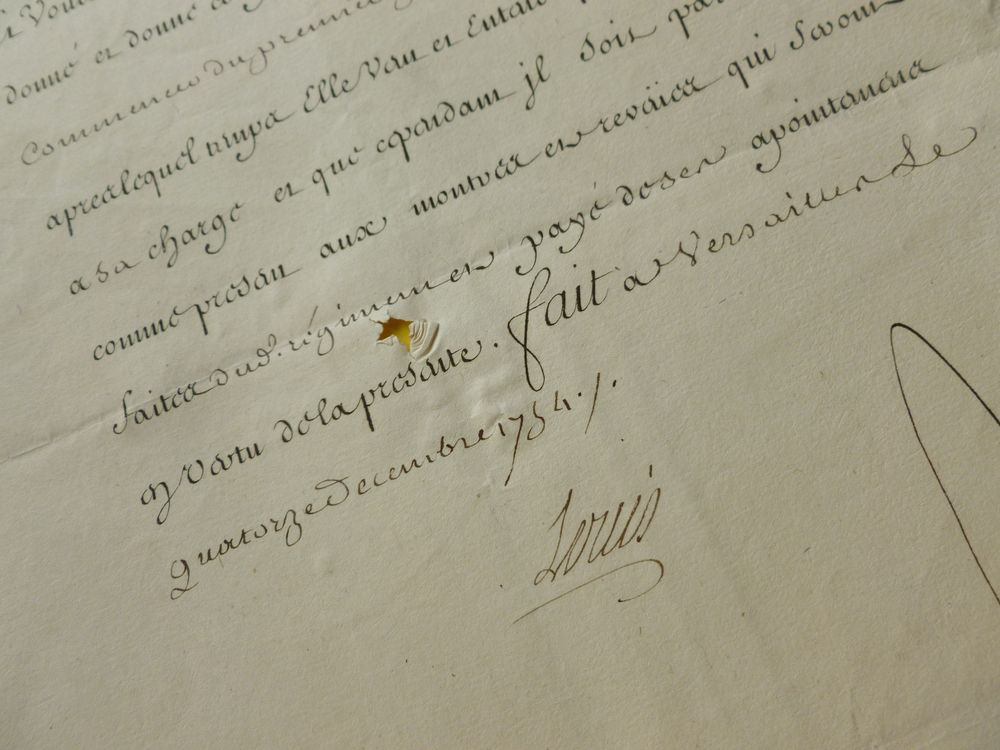 donné et donne
Commencer du premier
apres lequel temps Elle Veut et Entend
a sa charge et que cependant jl soit
comme present aux montres et reveües qui seront
faites dud. régiment et payé de ses apointemens
en vertu de la presente. fait a Versailles Le
Quatorze Decembre 1754./.
Louis